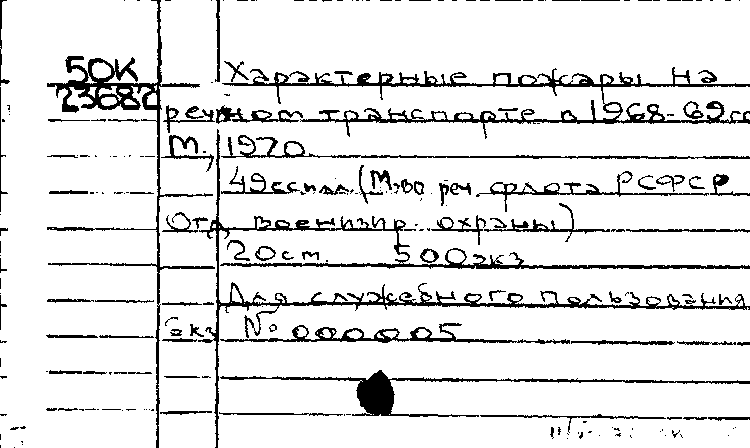 50К
23682
Характерные пожары на
речном транспорте в 1968-69гг
М., 1970.
49с с илл (М-во реч. флота РСФСР
Отд. военизир. охраны)
20см. 500экз
Для служебного пользования
экз № 000005